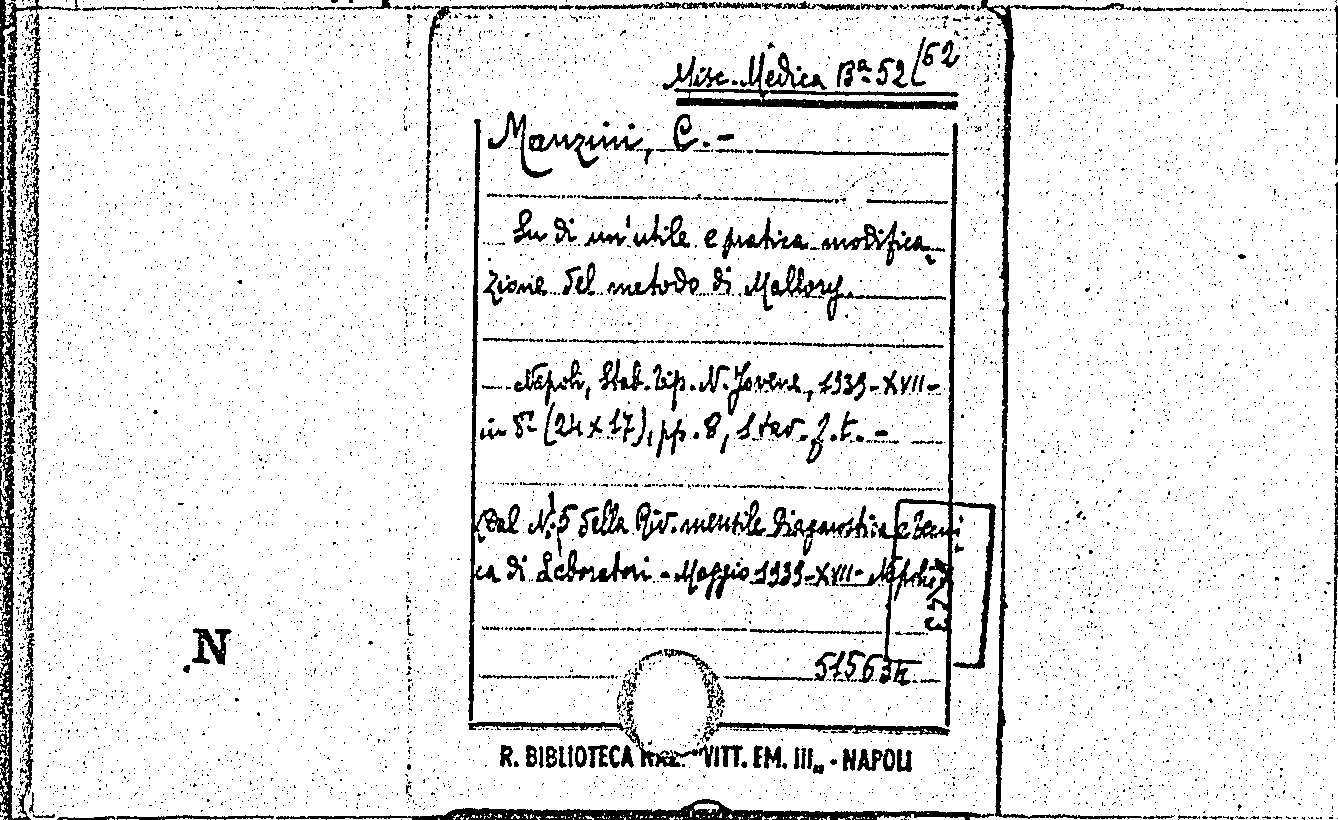 Misc. Medica Bª 52/62
Manzini, C.-
Su di un'utile e pratica modifica
zione del metodo di Mallory.
Napoli, Stab. Tip. N. Jovene, 1939-XVII-
in 8º (24 x 17), pp. 8, 1 tav. f. t. -
(Dal N. 5 della Riv. mensile Diagnostica e Tecni
ca di Laboratori - Maggio 1939-XVII- Napoli)
N
R. BIBLIOTECA NAZ. "VITT. EM. III„ - NAPOLI